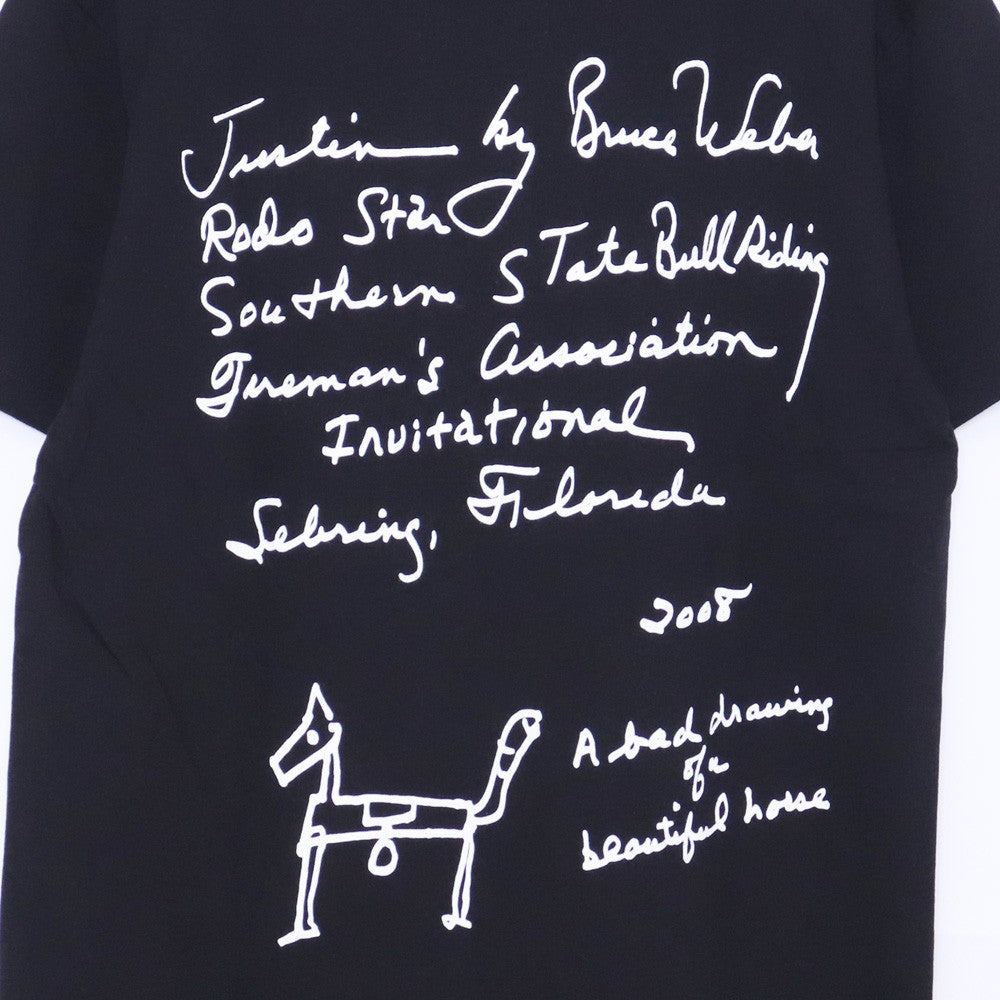 Justin by Bruce Weber
Rodeo Star
Southern State Bull Riding
Fireman's Association
Invitational
Sebring, Florida
2008
A bad drawing
of a
beautiful horse